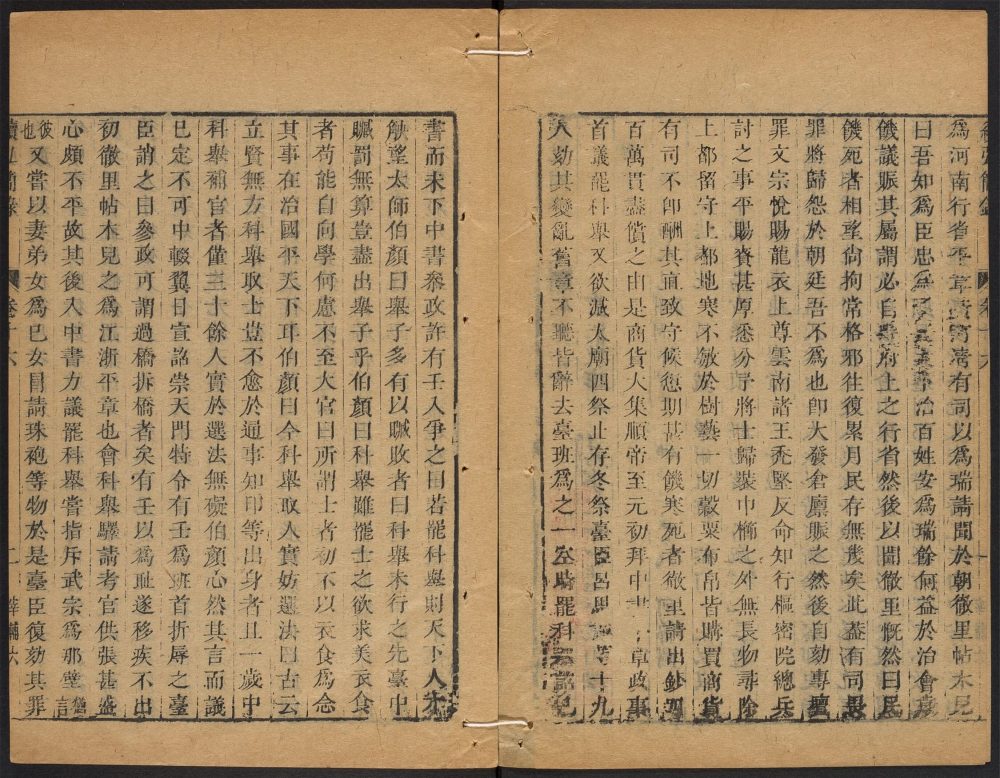 為河南行省平章黃河清有司以為瑞請聞於朝徹里帖木兒
曰吾知為臣忠為子孝治百姓安為瑞餘何益於治會歲
饑議賑其屬謂必自縣府上之行省然後以聞徹里慨然曰民
饑死者相望尚拘常格邪往復累月民存無幾矣此蓋有司畏
罪將歸怨於朝廷吾不為也即大發倉廩賑之然後自劾專擅
罪文宗悅賜龍衣上尊雲南諸王禿堅反命知行樞密院總兵
討之事平賜賚甚厚悉分予將士歸裝巾櫛之外無長物尋除
上都留守上都地寒不敏於樹藝一切穀粟布帛皆購買商貨
有司不即酬其直致守候愆期甚有饑寒死者徹里請出鈔四
百萬貫盡償之由是商貨大集順帝至元初拜中書平章政事
首議罷科舉又欲減太廟四祭止存冬祭臺臣呂思誠等十九
人劾其變亂舊章不聽皆辭去臺班為之一空時罷科舉詔已
書而未下中書參政許有壬入爭之曰若罷科舉則天下人才
觖望太師伯顏曰舉子多有以贓敗者曰科舉未行之先臺中
贓罰無算豈盡出舉子乎伯顏曰科舉雖罷士之欲求美衣食
者苟能自向學何慮不至大官曰所謂士者初不以衣食為念
其事在治國平天下耳伯顏曰今科舉取人實妨選法曰古云
立賢無方科舉取士豈不愈於通事知印等出身者且一歲中
科舉補官者僅三十餘人實於選法無礙伯顏心然其言而議
已定不可中輟翼日宣詔崇天門特令有壬為班首折辱之臺
臣謂之曰參政可謂過橋拆橋者矣有壬以為耻遂移疾不出
初徹里帖木兒之為江浙平章也會科舉驛請考官供張甚盛
心頗不平故其後入中書力議罷科舉嘗指斥武宗為那壁猶言
彼也又嘗以妻弟女為己女冒請珠袍等物於是臺臣復劾其罪
卷十六